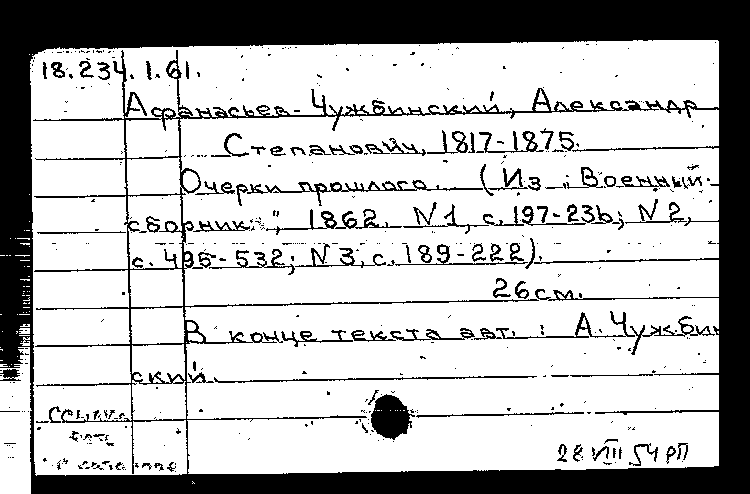 18.234.1.61.
Афанасьев-Чужбинский, Александр
Степанович, 1817-1875.
Очерки прошлого. (Из „Военный
сборник", 1862, N1, с.197-236; N2,
с. 495-532; N3, с.189-222).
26см.
В конце текста авт. : А.Чужбин
ский.
Ссылка
28 VIII 54 РП